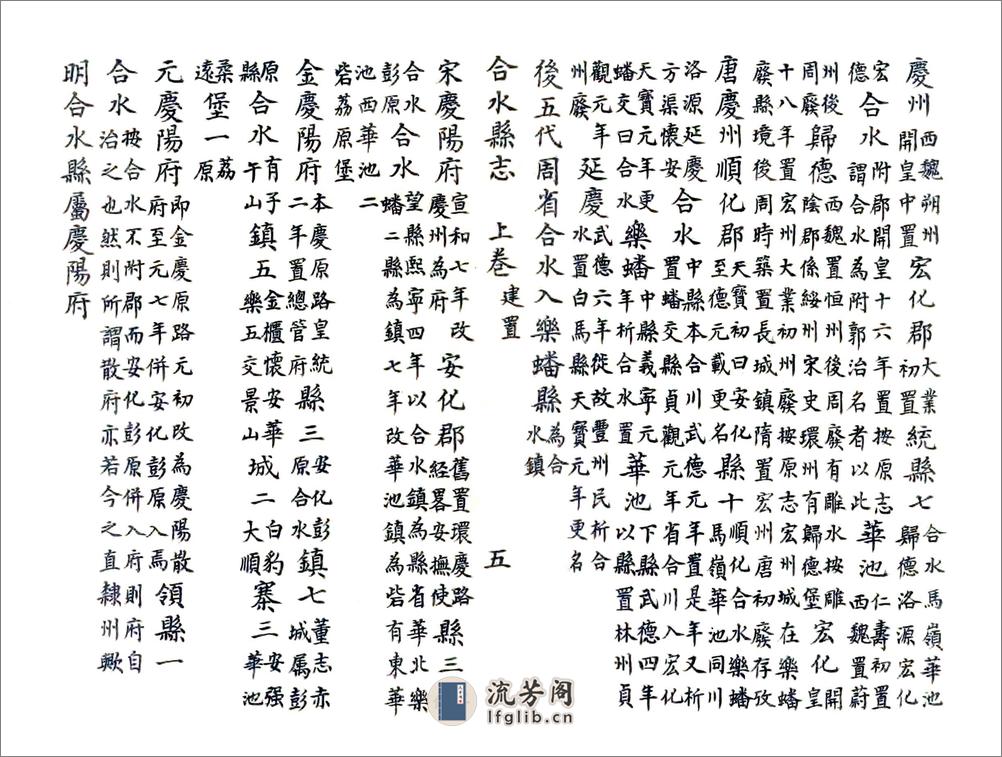 慶州西魏朔州開皇中置宏化郡大業初置統縣七合水馬嶺華池歸德洛源宏化
宏德合水附郡開皇十六年置按原志謂合水為附郭治名者以此華池仁壽初置西魏置蔚
州後周廢歸德西魏置恒州後周廢有雕水按雕陰郡係綏州宋史環州有歸德堡宏化開皇
十八年置宏州大業初州廢按原志宏州城在樂蟠廢縣境後周時築置長城鎮隋置宏州唐初廢存攷
唐慶州順化郡天寶初曰安化至德元載更名縣十順化合水樂蟠馬嶺華池同川
洛源延慶方渠懷安合水中縣本合川武德元年置是年又析置蟠交縣貞觀元年省合川入宏化
天寶元年更蟠交曰合水樂蟠中縣義寧元年析合水置華池下縣武德四年以縣置林州貞
觀元年州廢延慶武德六年徙故豐州民析合水置白馬縣天寶元年更名
後五代周省合水入樂蟠縣為合水鎮
合水縣志 上卷 建置 五
宋慶陽府宣和七年改慶州為府安化郡舊置環慶路經畧安撫使縣三
合水彭原合水望縣熙寧四年以合水鎮為縣省華北樂蟠二縣為鎮七年改華池鎮為砦有東華
池西華池二砦荔原堡
金慶陽府本慶原路皇統二年置總管府縣三安化彭原合水鎮七董志赤城属彭
原縣合水有子午山鎮五金櫃懷安華樂五交景山城二白豹大順寨三安強華池
柔遠堡一荔原
元慶陽府即金慶原路元初改為慶陽散府至元七年併安化彭原入焉領縣一
合水按合水不附郡而安化彭原併入府則府自治之也然則所謂散府亦若今之直隸州歟
明合水縣屬慶陽府
流芳阁
lfglib.cn